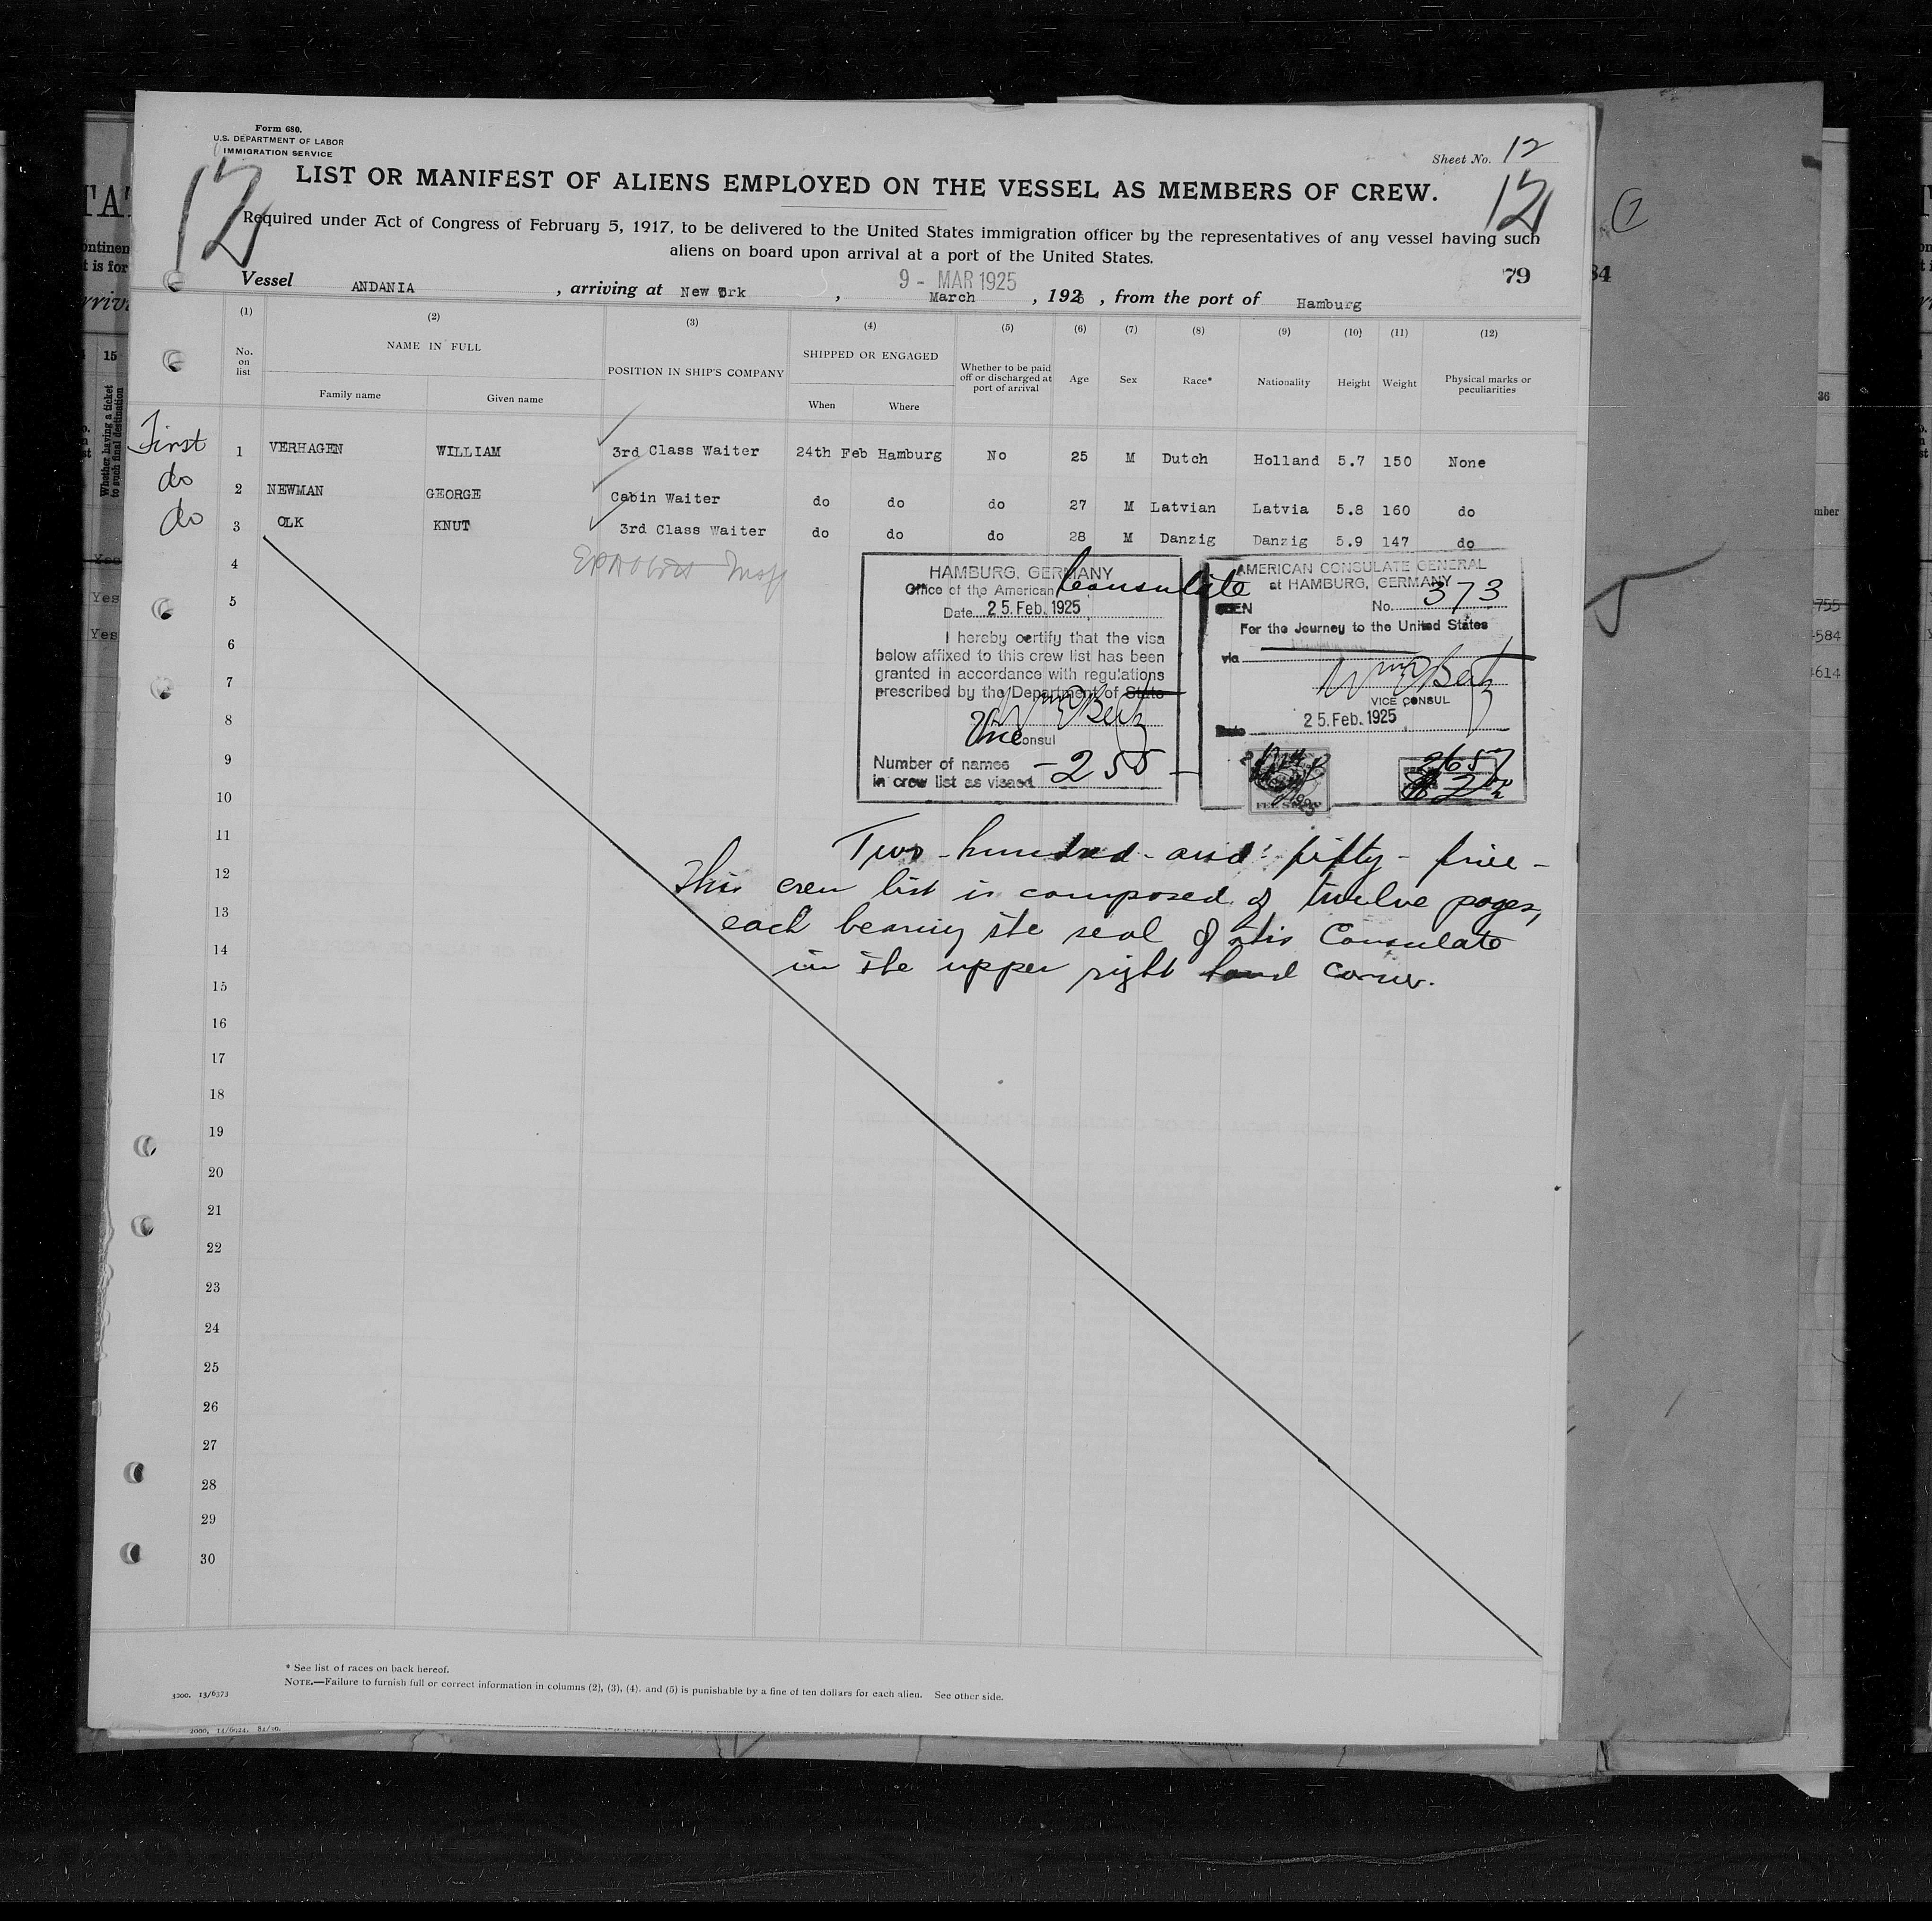 Form 680.
U.S. DEPARTMENT OF LABOR
IMMIGRATION SERVICE
Sheet No. 12
12
12
LIST OR MANIFEST OF ALIENS EMPLOYED ON THE VESSEL AS MEMBERS OF CREW.
Required under Act of Congress of February 5, 1917, to be delivered to the United States immigration officer by the representatives of any vessel having such
aliens on board upon arrival at a port of the United States.
79
9 - MAR 1925
Vessel ANDANIA, arriving at New York, March, 1925, from the port of Hamburg
(1) (2) (3) (4) (5) (6) (7) (8) (9) (10) (11) (12)
No. on list
NAME IN FULL
Family name Given name
POSITION IN SHIP'S COMPANY
SHIPPED OR ENGAGED
When Where
Whether to be paid off or discharged at port of arrival
Age Sex Race* Nationality Height Weight
Physical marks or peculiarities
First 1 VERHAGEN WILLIAM 3rd Class Waiter 24th Feb Hamburg No 25 M Dutch Holland 5.7 150 None
do 2 NEWMAN GEORGE Cabin Waiter do do do 27 M Latvian Latvia 5.8 160 do
do 3 OLK KNUT 3rd Class Waiter do do do 28 M Danzig Danzig 5.9 147 do
4
5
6
7
8
9
10
11
12
13
14
15
16
17
18
19
20
21
22
23
24
25
26
27
28
29
30
HAMBURG, GERMANY
Office of the American Consulate
Date 25. Feb. 1925
I hereby certify that the visa
below affixed to this crew list has been
granted in accordance with regulations
prescribed by the Department of State
Vice Consul
Number of names
in crew list as visaed -255-
AMERICAN CONSULATE GENERAL
at HAMBURG, GERMANY
SEEN No. 373
For the Journey to the United States
via
VICE CONSUL
Date 25. Feb. 1925
Two-hundred-and-fifty-five-
This crew list is composed of twelve pages,
each bearing the seal of this Consulate
in the upper right hand corner.
* See list of races on back hereof.
NOTE.—Failure to furnish full or correct information in columns (2), (3), (4). and (5) is punishable by a fine of ten dollars for each alien. See other side.
13/6373